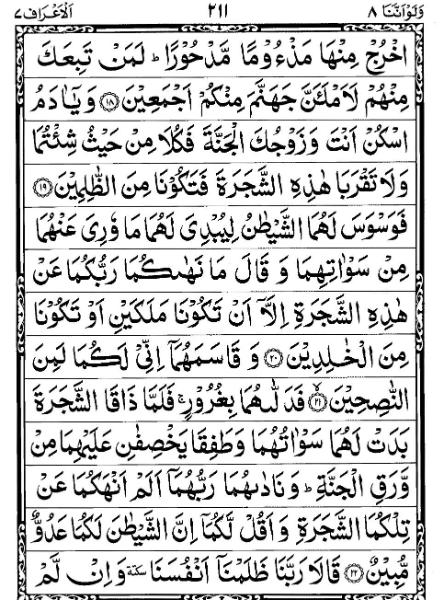 وَلَوْ اَنَّنَا ٨ ٢١١ اَلْاَعْرَاف ٧
اخْرُجْ مِنْهَا مَذْءُوْمًا مَّدْحُوْرًا ؕ لَمَنْ تَبِعَكَ
مِنْهُمْ لَاَمْلَئَنَّ جَهَنَّمَ مِنْكُمْ اَجْمَعِيْنَ ۝۱۸ وَ يٰۤاٰدَمُ
اسْكُنْ اَنْتَ وَ زَوْجُكَ الْجَنَّةَ فَكُلَا مِنْ حَيْثُ شِئْتُمَا
وَلَا تَقْرَبَا هٰذِهِ الشَّجَرَةَ فَتَكُوْنَا مِنَ الظّٰلِمِيْنَ ۝۱۹
فَوَسْوَسَ لَهُمَا الشَّيْطٰنُ لِيُبْدِيَ لَهُمَا مَا وٗرِيَ عَنْهُمَا
مِنْ سَوْاٰتِهِمَا وَ قَالَ مَا نَهٰىكُمَا رَبُّكُمَا عَنْ
هٰذِهِ الشَّجَرَةِ اِلَّاۤ اَنْ تَكُوْنَا مَلَكَيْنِ اَوْ تَكُوْنَا
مِنَ الْخٰلِدِيْنَ ۝۲۰ وَ قَاسَمَهُمَاۤ اِنِّيْ لَكُمَا لَمِنَ
النّٰصِحِيْنَ ۝۲۱ فَدَلّٰىهُمَا بِغُرُوْرٍ ۚ فَلَمَّا ذَاقَا الشَّجَرَةَ
بَدَتْ لَهُمَا سَوْاٰتُهُمَا وَ طَفِقَا يَخْصِفٰنِ عَلَيْهِمَا مِنْ
وَّرَقِ الْجَنَّةِ ؕ وَ نَادٰىهُمَا رَبُّهُمَاۤ اَلَمْ اَنْهَكُمَا عَنْ
تِلْكُمَا الشَّجَرَةِ وَ اَقُلْ لَّكُمَاۤ اِنَّ الشَّيْطٰنَ لَكُمَا عَدُوٌّ
مُّبِيْنٌ ۝۲۲ قَالَا رَبَّنَا ظَلَمْنَاۤ اَنْفُسَنَا سكتة وَ اِنْ لَّمْ